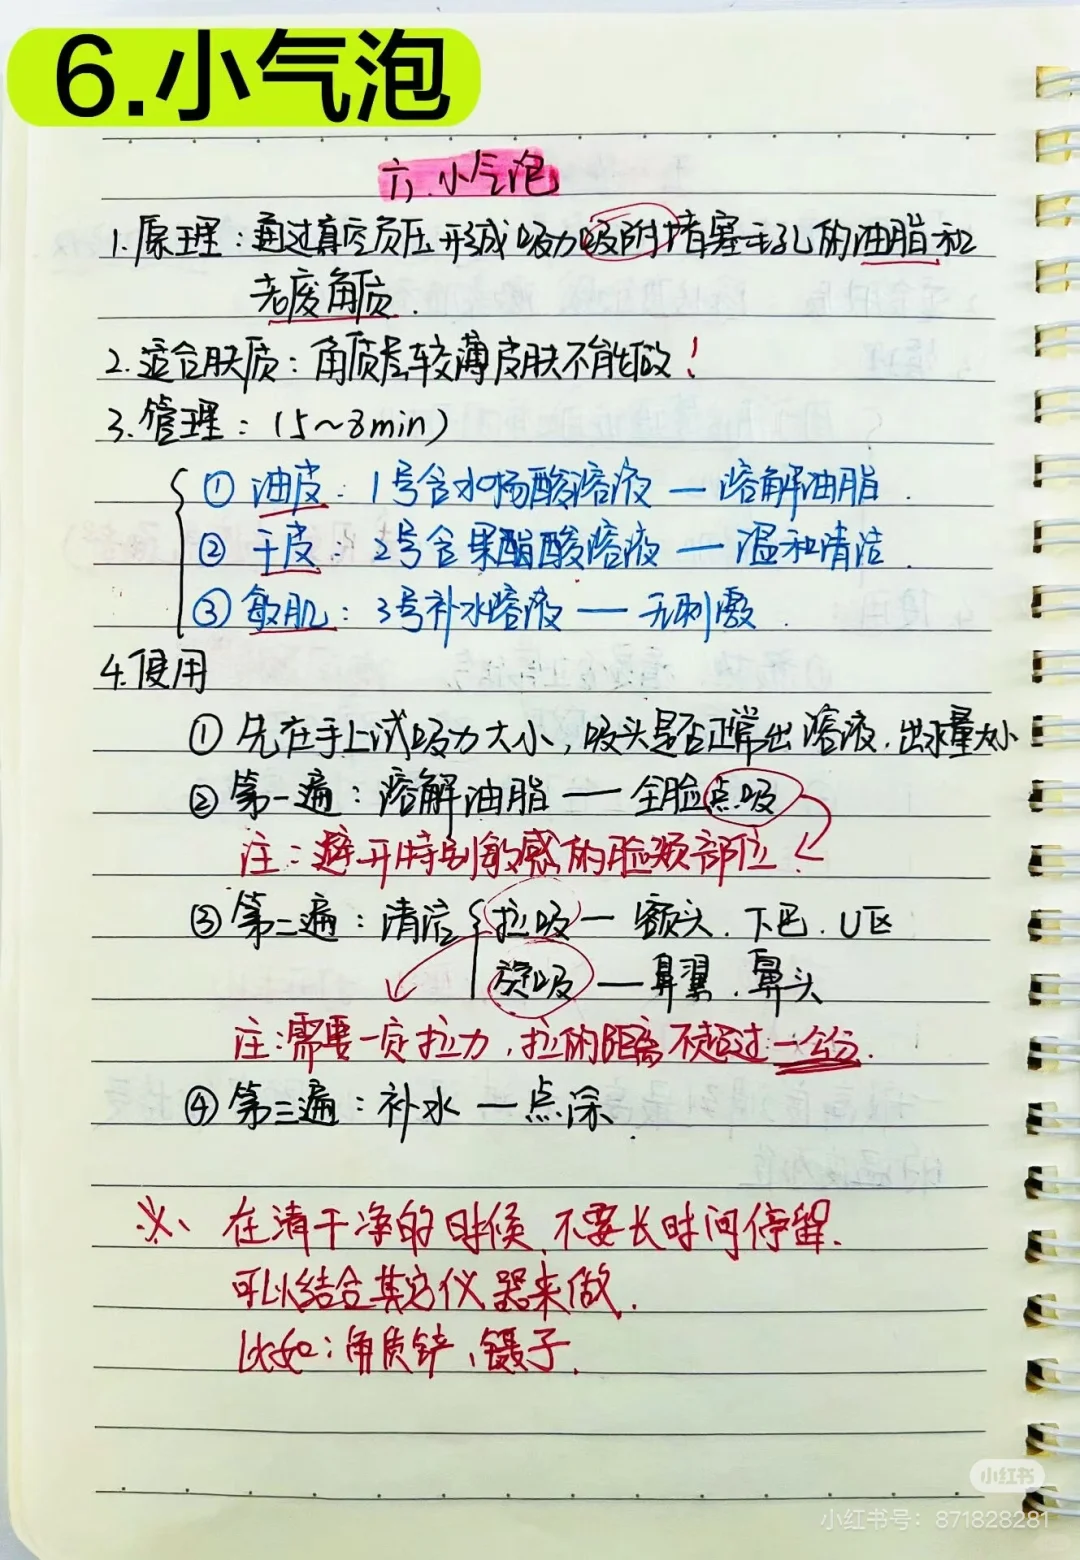 6.小气泡
六、小气泡
1.原理：通过真空负压形成吸力吸附堵塞毛孔的油脂和
老废角质.
2.适合肤质：角质层较薄皮肤不能做！
3.管理：(5~8min)
① 油皮：1号含水杨酸溶液 — 溶解油脂.
② 干皮：2号含果醋酸溶液 — 温和清洁.
③ 敏肌：3号补水溶液 — 无刺激.
4.使用
① 先在手上试吸力大小，吸头是否正常出溶液，出水量大小
② 第一遍：溶解油脂 — 全脸点吸
注：避开特别敏感的脸颊部位
③ 第二遍：清洁 { 拉吸 — 额头、下巴、U区
旋吸 — 鼻翼、鼻头
注：需要一定拉力，拉的距离不超过一公分.
④ 第三遍：补水 — 点涂.
※、在清干净的时候，不要长时间停留.
可以结合其它仪器来做.
比如：角质铲、镊子.
小红书
小红书号：871828281